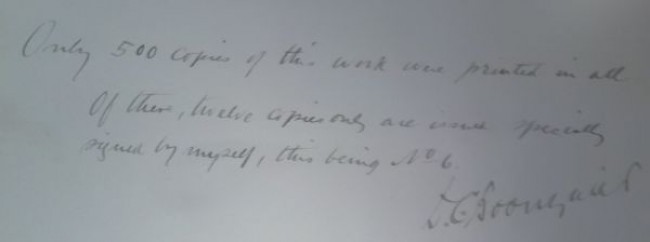 Only 500 copies of this work were printed in all
Of these, twelve copies only are issued specially
signed by myself, this being No 6
D. C. Boonzaier